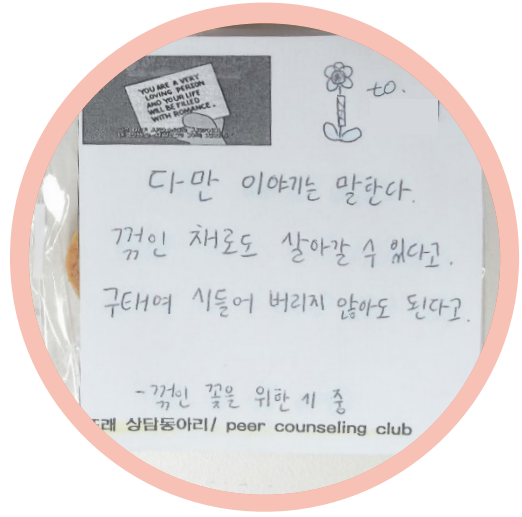 YOU ARE A VERY
LOVING PERSON
AND YOUR LIFE
WILL BE FILLED
WITH ROMANCE.
to.
다만 이야기는 말한다.
꺾인 채로도 살아갈 수 있다고.
구태여 시들어 버리지 않아도 된다고.
-꺾인 꽃을 위한 시 중
또래 상담동아리/ peer counseling club